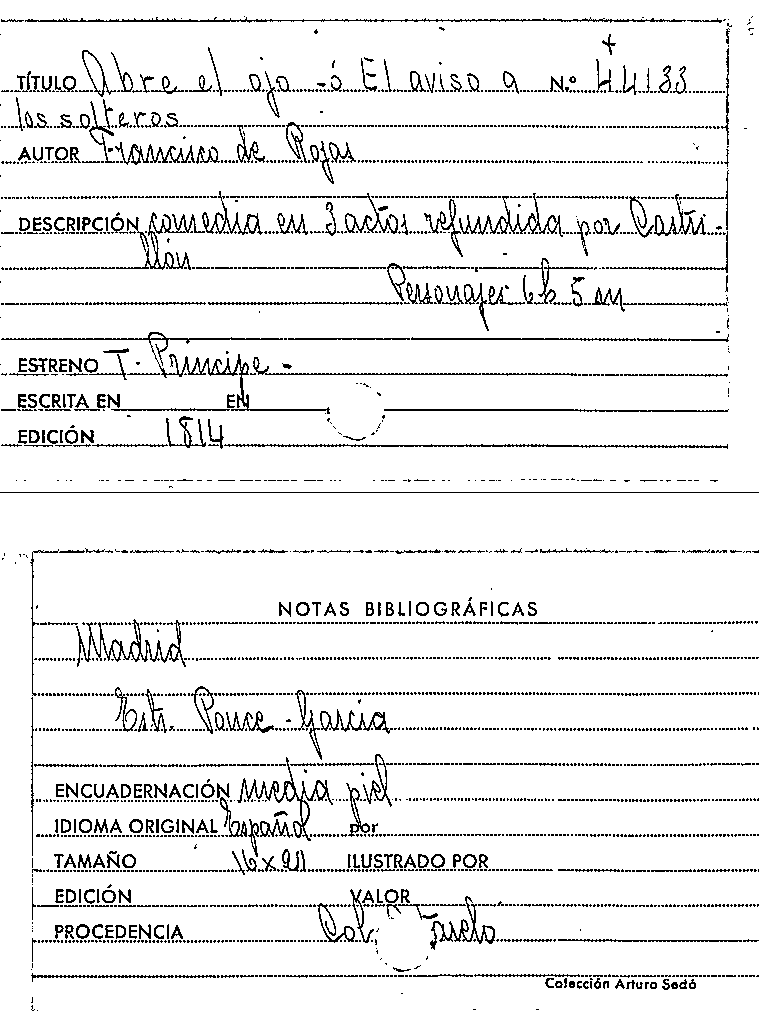 TÍTULO Abre el ojo -ó El aviso a N.º 44133
los solteros
AUTOR Francisco de Rojas
DESCRIPCIÓN comedia en 3 actos refundida por Castri-
llón
Personajes 6h 5 m
ESTRENO T. Principe -
ESCRITA EN EN
EDICIÓN 1814
NOTAS BIBLIOGRÁFICAS
Madrid
Estr. Ponce - Garcia
ENCUADERNACIÓN media piel
IDIOMA ORIGINAL Español por
TAMAÑO ILUSTRADO POR
EDICIÓN VALOR
PROCEDENCIA
Colección Arturo Sedó